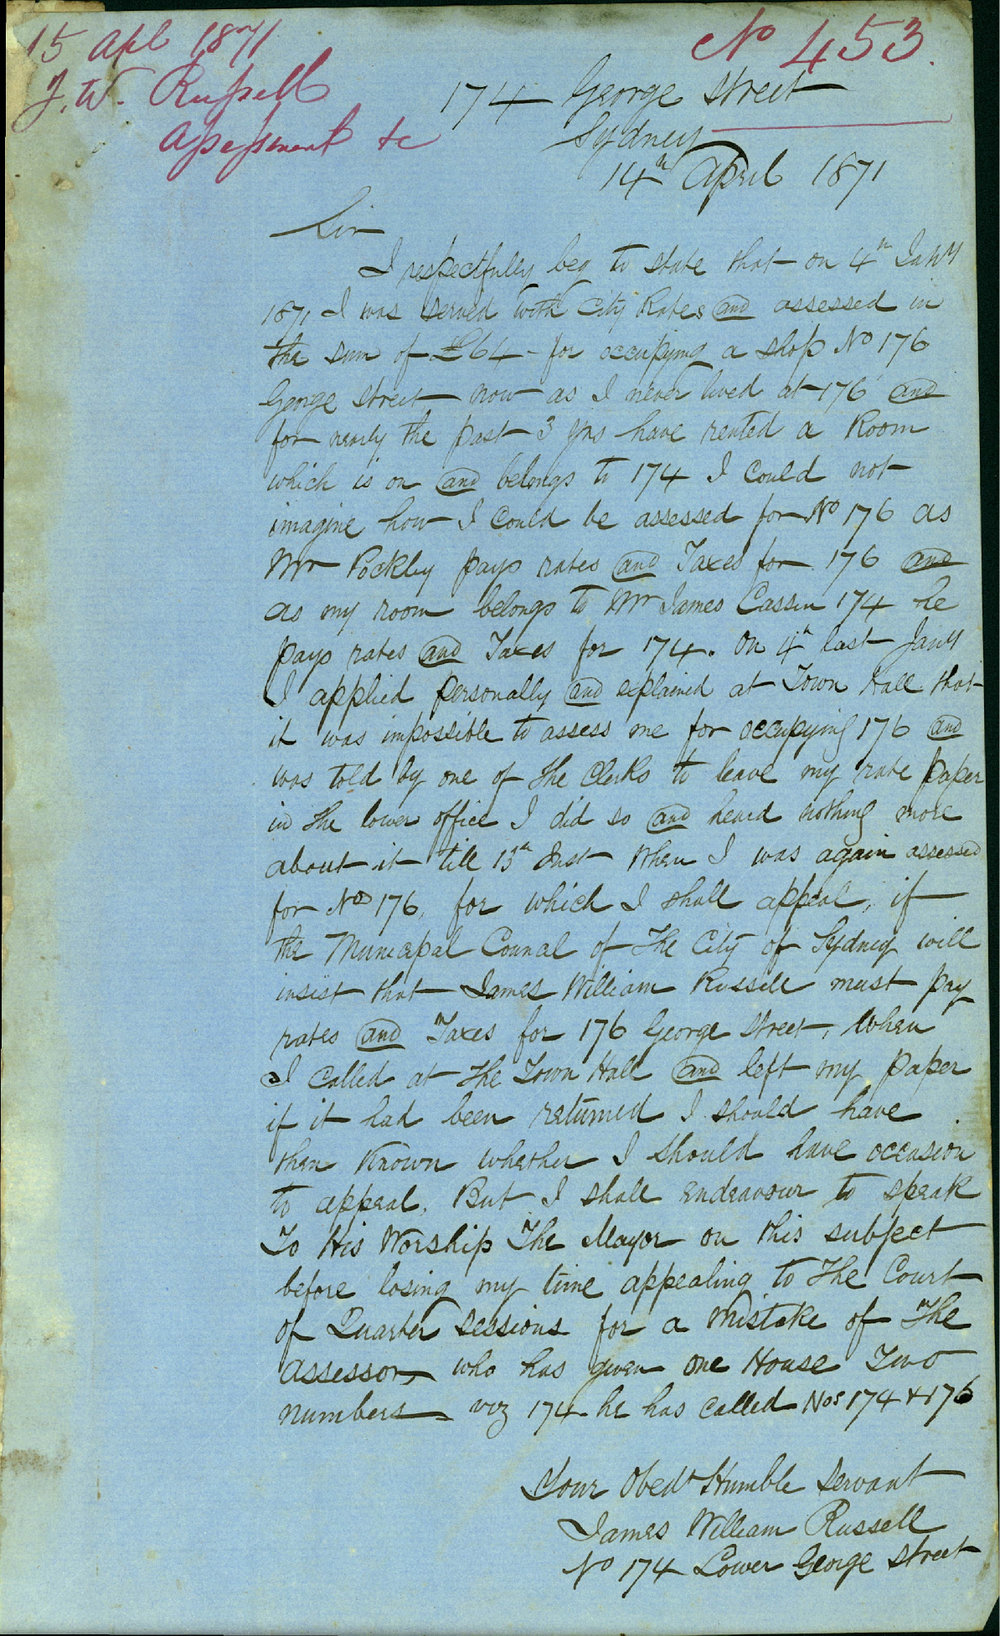 15 Apl 1871
J. W. Russell
Assessment &c
No 453.
174 George Street
Sydney
14th April 1871
Sir
I respectfully beg to state that on 4th Jany
1871 I was served with City Rates and assessed in
the sum of £64 - for occupying a shop No 176
George Street now as I never lived at 176 and
for nearly the past 3 yrs have rented a Room
which is on and belongs to 174 I could not
imagine how I could be assessed for No 176 as
Mr Pockley pays rates and Taxes for 176 and
as my room belongs to Mr James Cassin 174 he
pays rates and Taxes for 174. On 4th last Jany
I applied personally and explained at Town Hall that
it was impossible to assess me for occupying 176 and
was told by one of the Clerks to leave my rate paper
in the lower office I did so and heard nothing more
about it till 13th Inst when I was again assessed
for No 176, for which I shall appeal, if
the Municapal Council of The City of Sydney will
insist that James William Russell must pay
rates and Taxes for 176 George Street, When
I called at the Town Hall and left my paper
if it had been returned I should have
then known whether I should have occasion
to appeal. But I shall endeavour to speak
To His Worship The Mayor on this subject
before losing my time appealing to The Court
of Quarter Sessions for a Mistake of The
Assessor, who has given one House Two
numbers - viz 174 he has called Nos 174 & 176
Your Obedt Humble Servant
James William Russell
No 174 Lower George Street